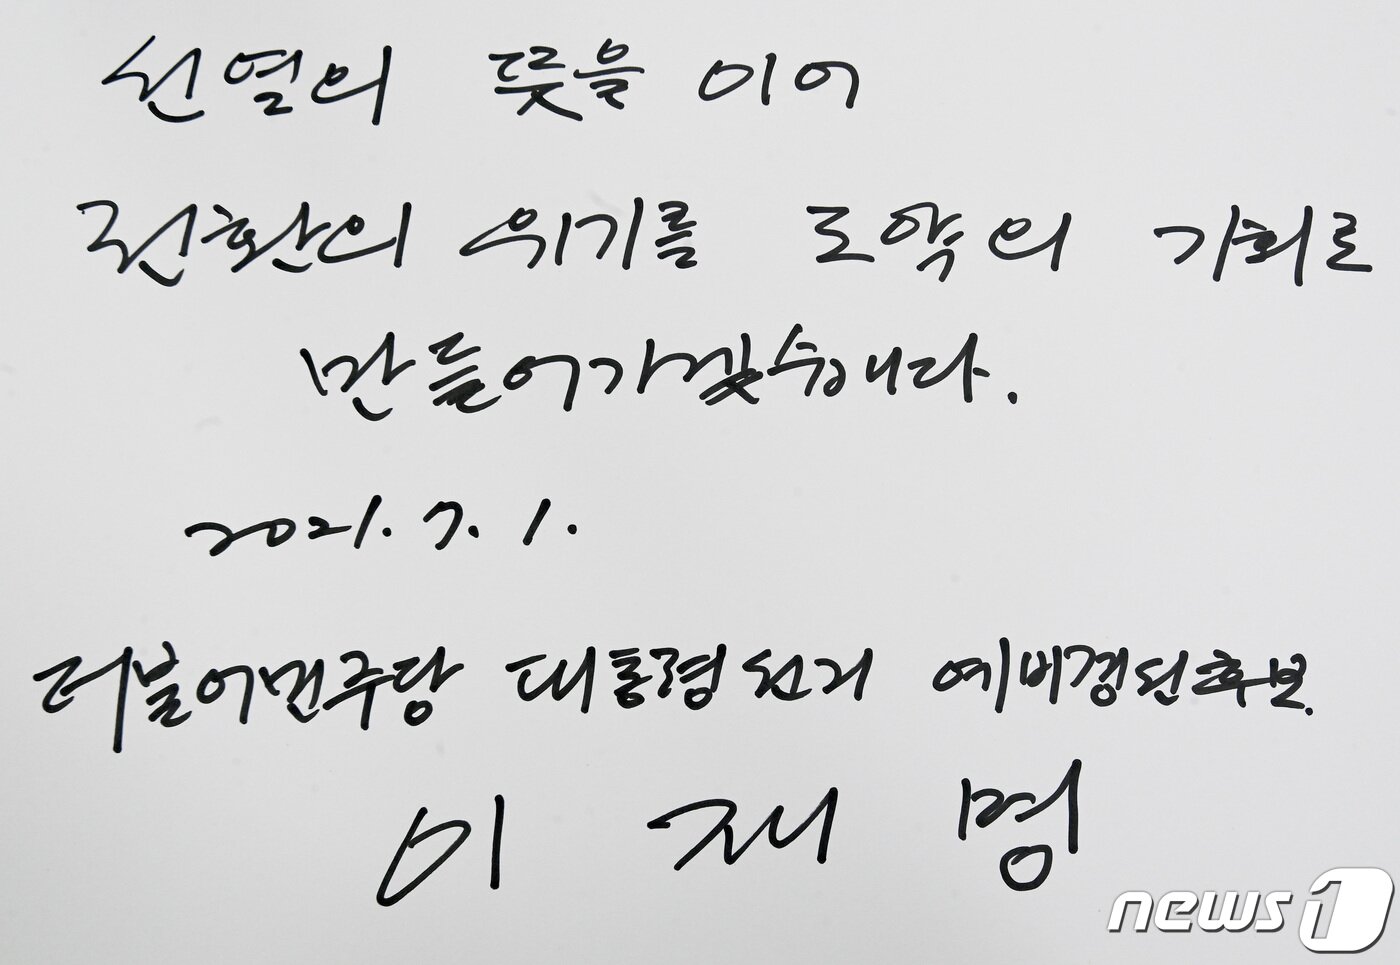 선열의 뜻을 이어
전환의 위기를 도약의 기회로
만들어가겠습니다.
2021. 7. 1.
더불어민주당 대통령선거 예비경선후보.
이재명
news1